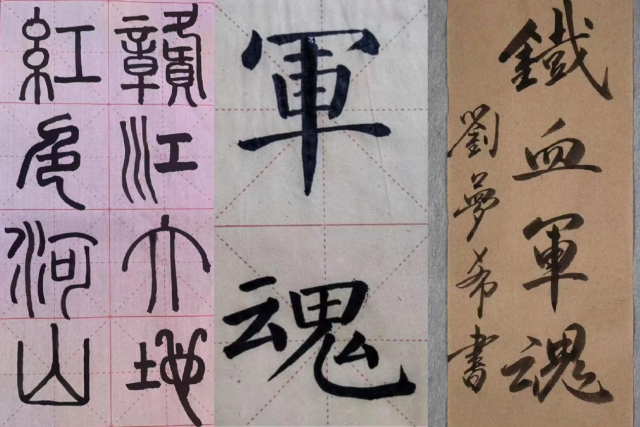 贛江大地
紅色河山
軍魂
鐵血軍魂
劉夢希書